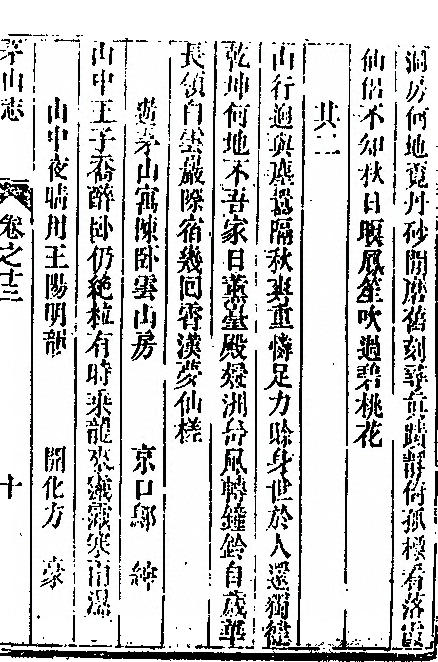 洞房何地覓丹砂閒磨舊刻尋真蹟靜倚孤標看落霞
仙侶不知秋日暝鳳笙吹過碧桃花
其二
山行迥與塵囂隔秋爽重憐足力賒身世於人還獨健
乾坤何地不吾家日薰臺殿煖洲台風轉鐘鈴自歲華
長領白雲巖際宿幾回霄漢夢仙槎
遊茅山寓陳臥雲山房 京口鄔紳
山中王子喬醉臥仍絶粒有時乘龍來靉靆寒雨濕
山中夜晴用王陽明韻 開化方豪
茅山志 卷之十三 十